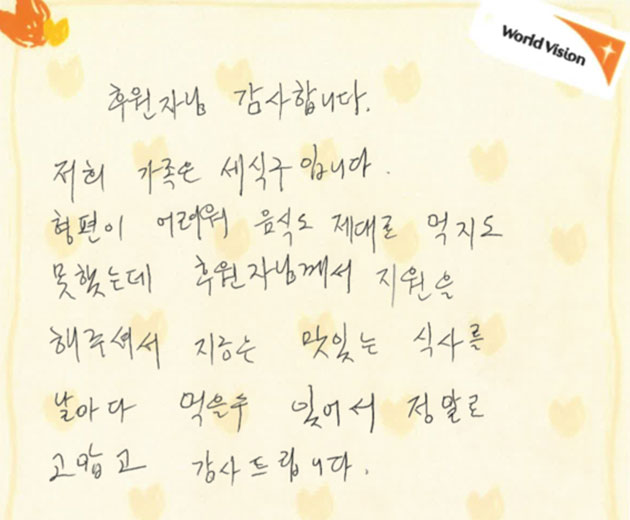 World Vision
후원자님 감사합니다.
저희 가족은 세식구입니다.
형편이 어려워 음식도 제대로 먹지도
못했는데 후원자님께서 지원을
해주셔서 지금은 맛잊는 식사를
날아다 먹을수 잊어서 정말로
고맙고 감사드립니다.